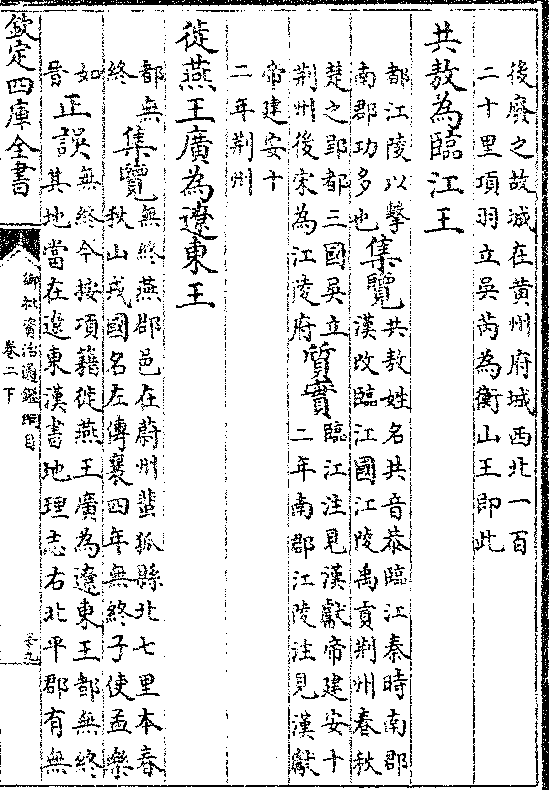 後廢之故城在黃州府城西北一百
二十里項羽立吳芮為衡山王即此
共敖為臨江王
都江陵以擊
南郡功多也
集覽
共敖姓名共音恭臨江秦時南郡
漢改臨江國江陵禹貢荆州春秋
楚之郢都三國吳立
荆州後宋為江陵府
質實
臨江注見漢獻帝建安十
二年南郡江陵注見漢獻
帝建安十
二年荆州
徙燕王廣為遼東王
都無
終
集覽
無終燕郡邑在蔚州蜚狐縣北七里本春
秋山戎國名左傳襄四年無終子使孟樂
如
晉
正誤
無終今按項籍徙燕王廣為遼東王都無終
其地當在遼東漢書地理志右北平郡有無
欽定四庫全書
御批資治通鑑綱目
卷二下